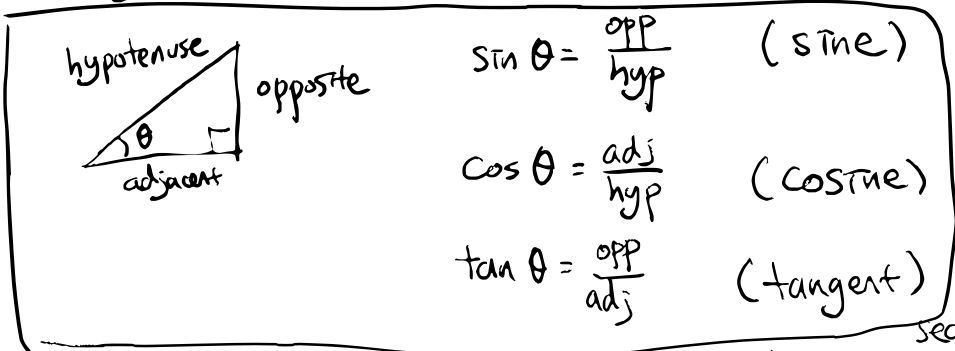 hypotenuse
opposite
θ
adjacent
sin θ = opp/hyp (sine)
cos θ = adj/hyp (cosine)
tan θ = opp/adj (tangent)
sec